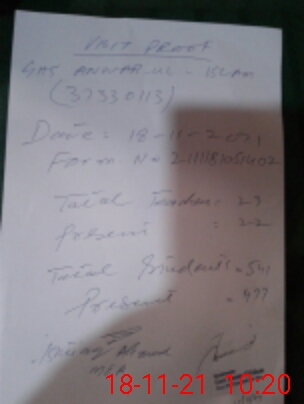 VISIT PROOF
GHS ANWAR-UL-ISLAM
(37330113)
Date: 18-11-2021
Form No
Total Teacher = 23
Present = 22
Total Students = 541
Present = 497
Ahmad
MEA
18-11-21 10:20